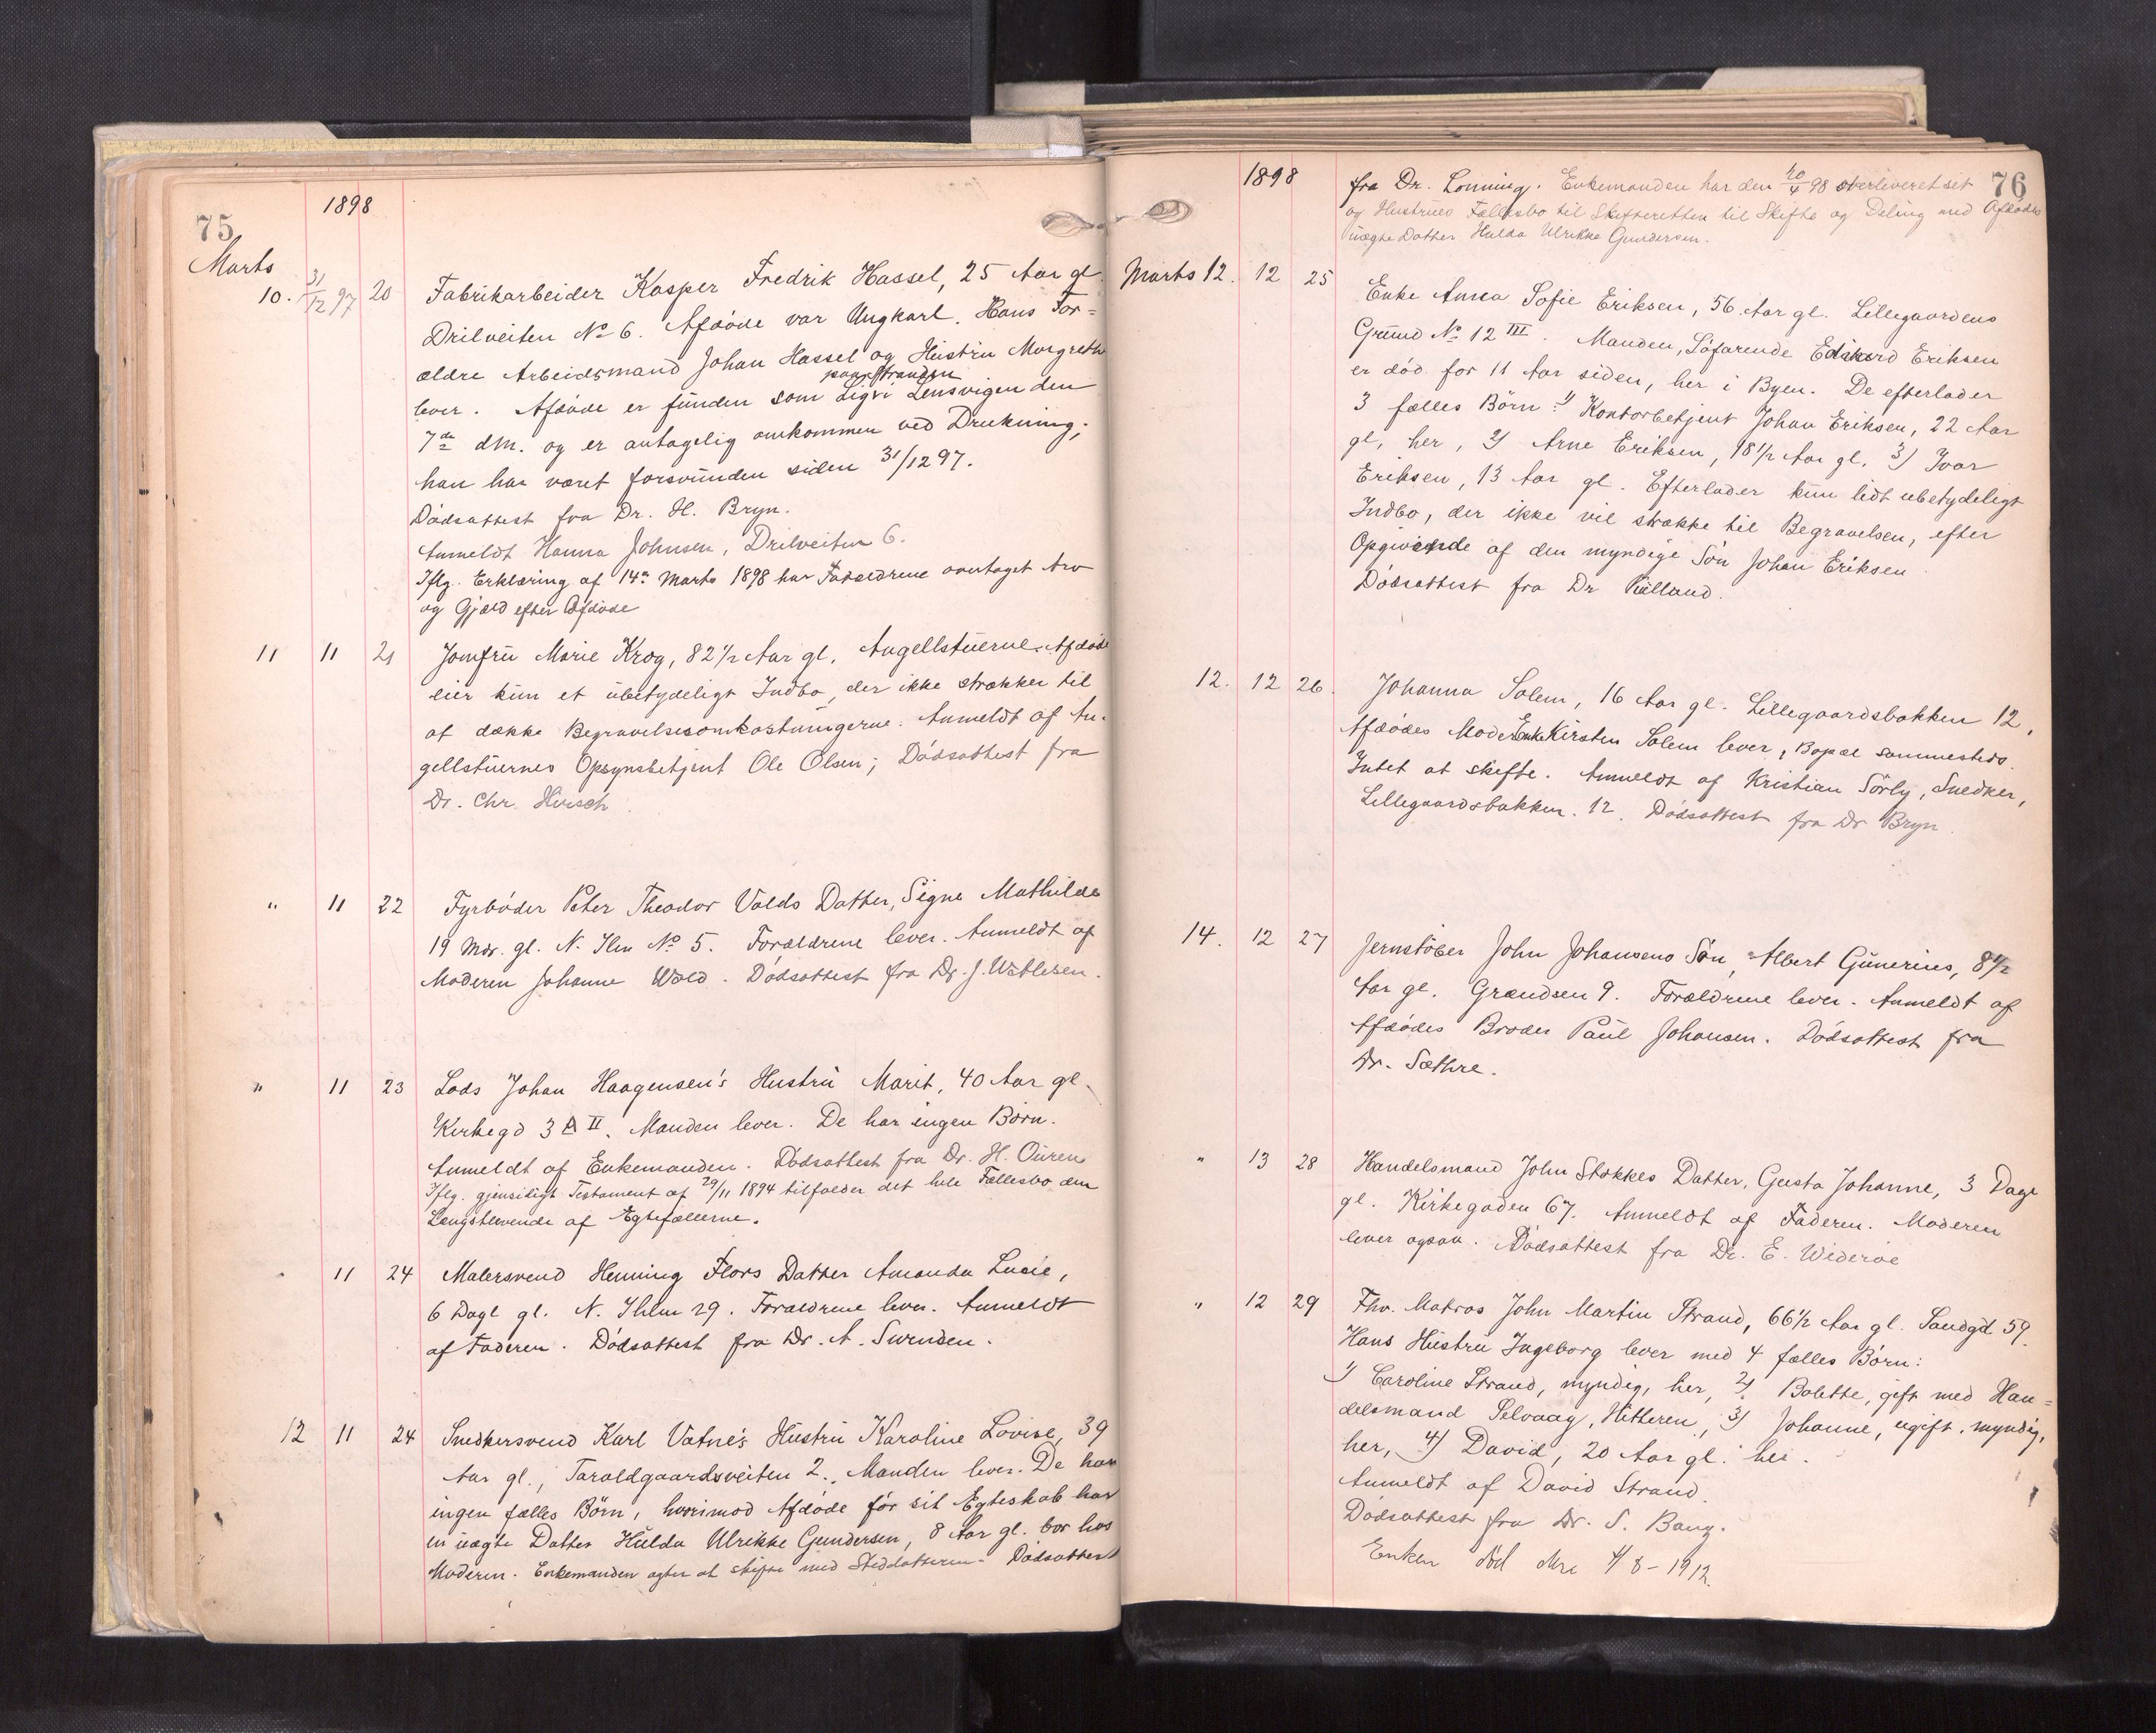 75
1898
Marts
10. 31/12 97 20 Fabrikarbeider Kasper Fredrik Hassel, 25 Aar gl.
Drilveiten No 6. Afdöde var Ungkarl. Hans For=
ældre Arbeidsmand Johan Hassel og Hustru Margrethe
paa Stranden
lever. Afdöde er funden som Lig i Lensvigen den
7de dm. og er antagelig omkommen ved Drukning;
han har været forsvunden siden 31/12 97.
Dödsattest fra Dr. H. Bryn.
Anmeldt Hanna Johnsen, Drilveiten 6.
Iflg. Erklæring af 14de Marts 1898 har Forældrene overtaget Arv
og Gjæld efter Afdöde
11 11 21 Jomfru Marie Krog, 82 1/2 Aar gl. Angellstuerne. Afdöde
eier kun et ubetydeligt Indbo, der ikke strækker til
at dække Begravelsesomkostningerne. Anmeldt af An-
gellstuernes Opsynsbetjent Ole Olsen; Dödsattest fra
Dr. Chr. Hirsch
" 11 22 Fyrböder Peter Theodor Valds Datter, Signe Mathilde
19 Mdr. gl. N. Ilen No 5. Forældrene lever. Anmeldt af
Moderen Johanne Wold. Dödsattest fra Dr. J.
" 11 23 Lods Johan Haagensen's Hustru Marit, 40 Aar gl.
Kirkegd 3 A II. Manden lever. De har ingen Börn.
Anmeldt af Enkemanden. Dödsattest fra Dr. H. Ouren
Iflg. gjensidigt Testament af 29/11 1894 tilfalder det hele Fællesbo den
Længstlevende af Egtefællerne.
" 11 24 Malersvend Henning Flors Datter Amanda Lucie,
6 Dage gl. N. Ihlen 29. Forældrene lever. Anmeldt
af Faderen. Dödsattest fra Dr. A. Svendsen.
12 11 24 Snedkersvend Karl Vatne's Hustru Karoline Lovise, 39
Aar gl., Taraldgaardsveiten 2. Manden lever. De har
ingen fælles Börn, hvorimod Afdöde för sit Egteskab har
en uægte Datter Hulda Ulrikke Gundersen, 8 Aar gl. bor hos
Moderen. Enkemanden agter at skifte med Steddatteren. Dödsattest
76
1898
fra Dr. Lonning. Enkemanden har den 20/4 98 overleveret sit
og Hustrues Fællesbo til Skifteretten til Skifte og Deling med Afdödes
uægte Datter Hulda Ulrikke Gundersen.
Marts 12. 12 25 Enke Anna Sofie Eriksen, 56 Aar gl. Lillegaardens
Grund No 12 III. Manden, Söfarende Edvard Eriksen
er död for 11 Aar siden, her i Byen. De efterlader
3 fælles Börn: 1) Kontorbetjent Johan Eriksen, 22 Aar
gl, her, 2) Arne Eriksen, 18 1/2 Aar gl. 3) Ivar
Eriksen, 13 Aar gl. Efterlader kun lidt ubetydeligt
Indbo, der ikke vil strække til Begravelsen, efter
Opgivende af den myndige Sön Johan Eriksen.
Dödsattest fra Dr Kielland.
12. 12 26. Johanna Solem, 16 Aar gl. Lillegaardsbakken 12,
Afdödes Moder Enke Kirsten Solem lever, Bopæl sammesteds.
Intet at skifte. Anmeldt af Kristian Sörby, Snedker,
Lillegaardsbakken. 12. Dödsattest fra Dr Bryn.
14. 12 27 Jernstöber John Johansens Sön, Albert Gunerius, 8 1/2
Aar gl. Grændsen 9. Forældrene lever. Anmeldt af
Afdödes Broder Paul Johansen. Dödsattest fra
Dr. Sæthre.
" 13 28 Handelsmand John Stokkes Datter, Gusta Johanne, 3 Dage
gl. Kirkegaden 67. Anmeldt af Faderen. Moderen
lever ogsaa. Dödsattest fra Dr. E. Wideröe
" 12 29 Fhv. Matros John Martin Strand, 66 1/2 Aar gl. Sandgd. 59.
Hans Hustru Ingeborg lever med 4 fælles Börn:
1) Caroline Strand, myndig, her, 2) Bolette, gift med Han=
delsmand Selvaag, Hitteren, 3) Johanne, ugift, myndig,
her, 4) David, 20 Aar gl. her.
Anmeldt af David Strand.
Dödsattest fra Dr. S. Bang.
Enken död 4/8 - 1912.